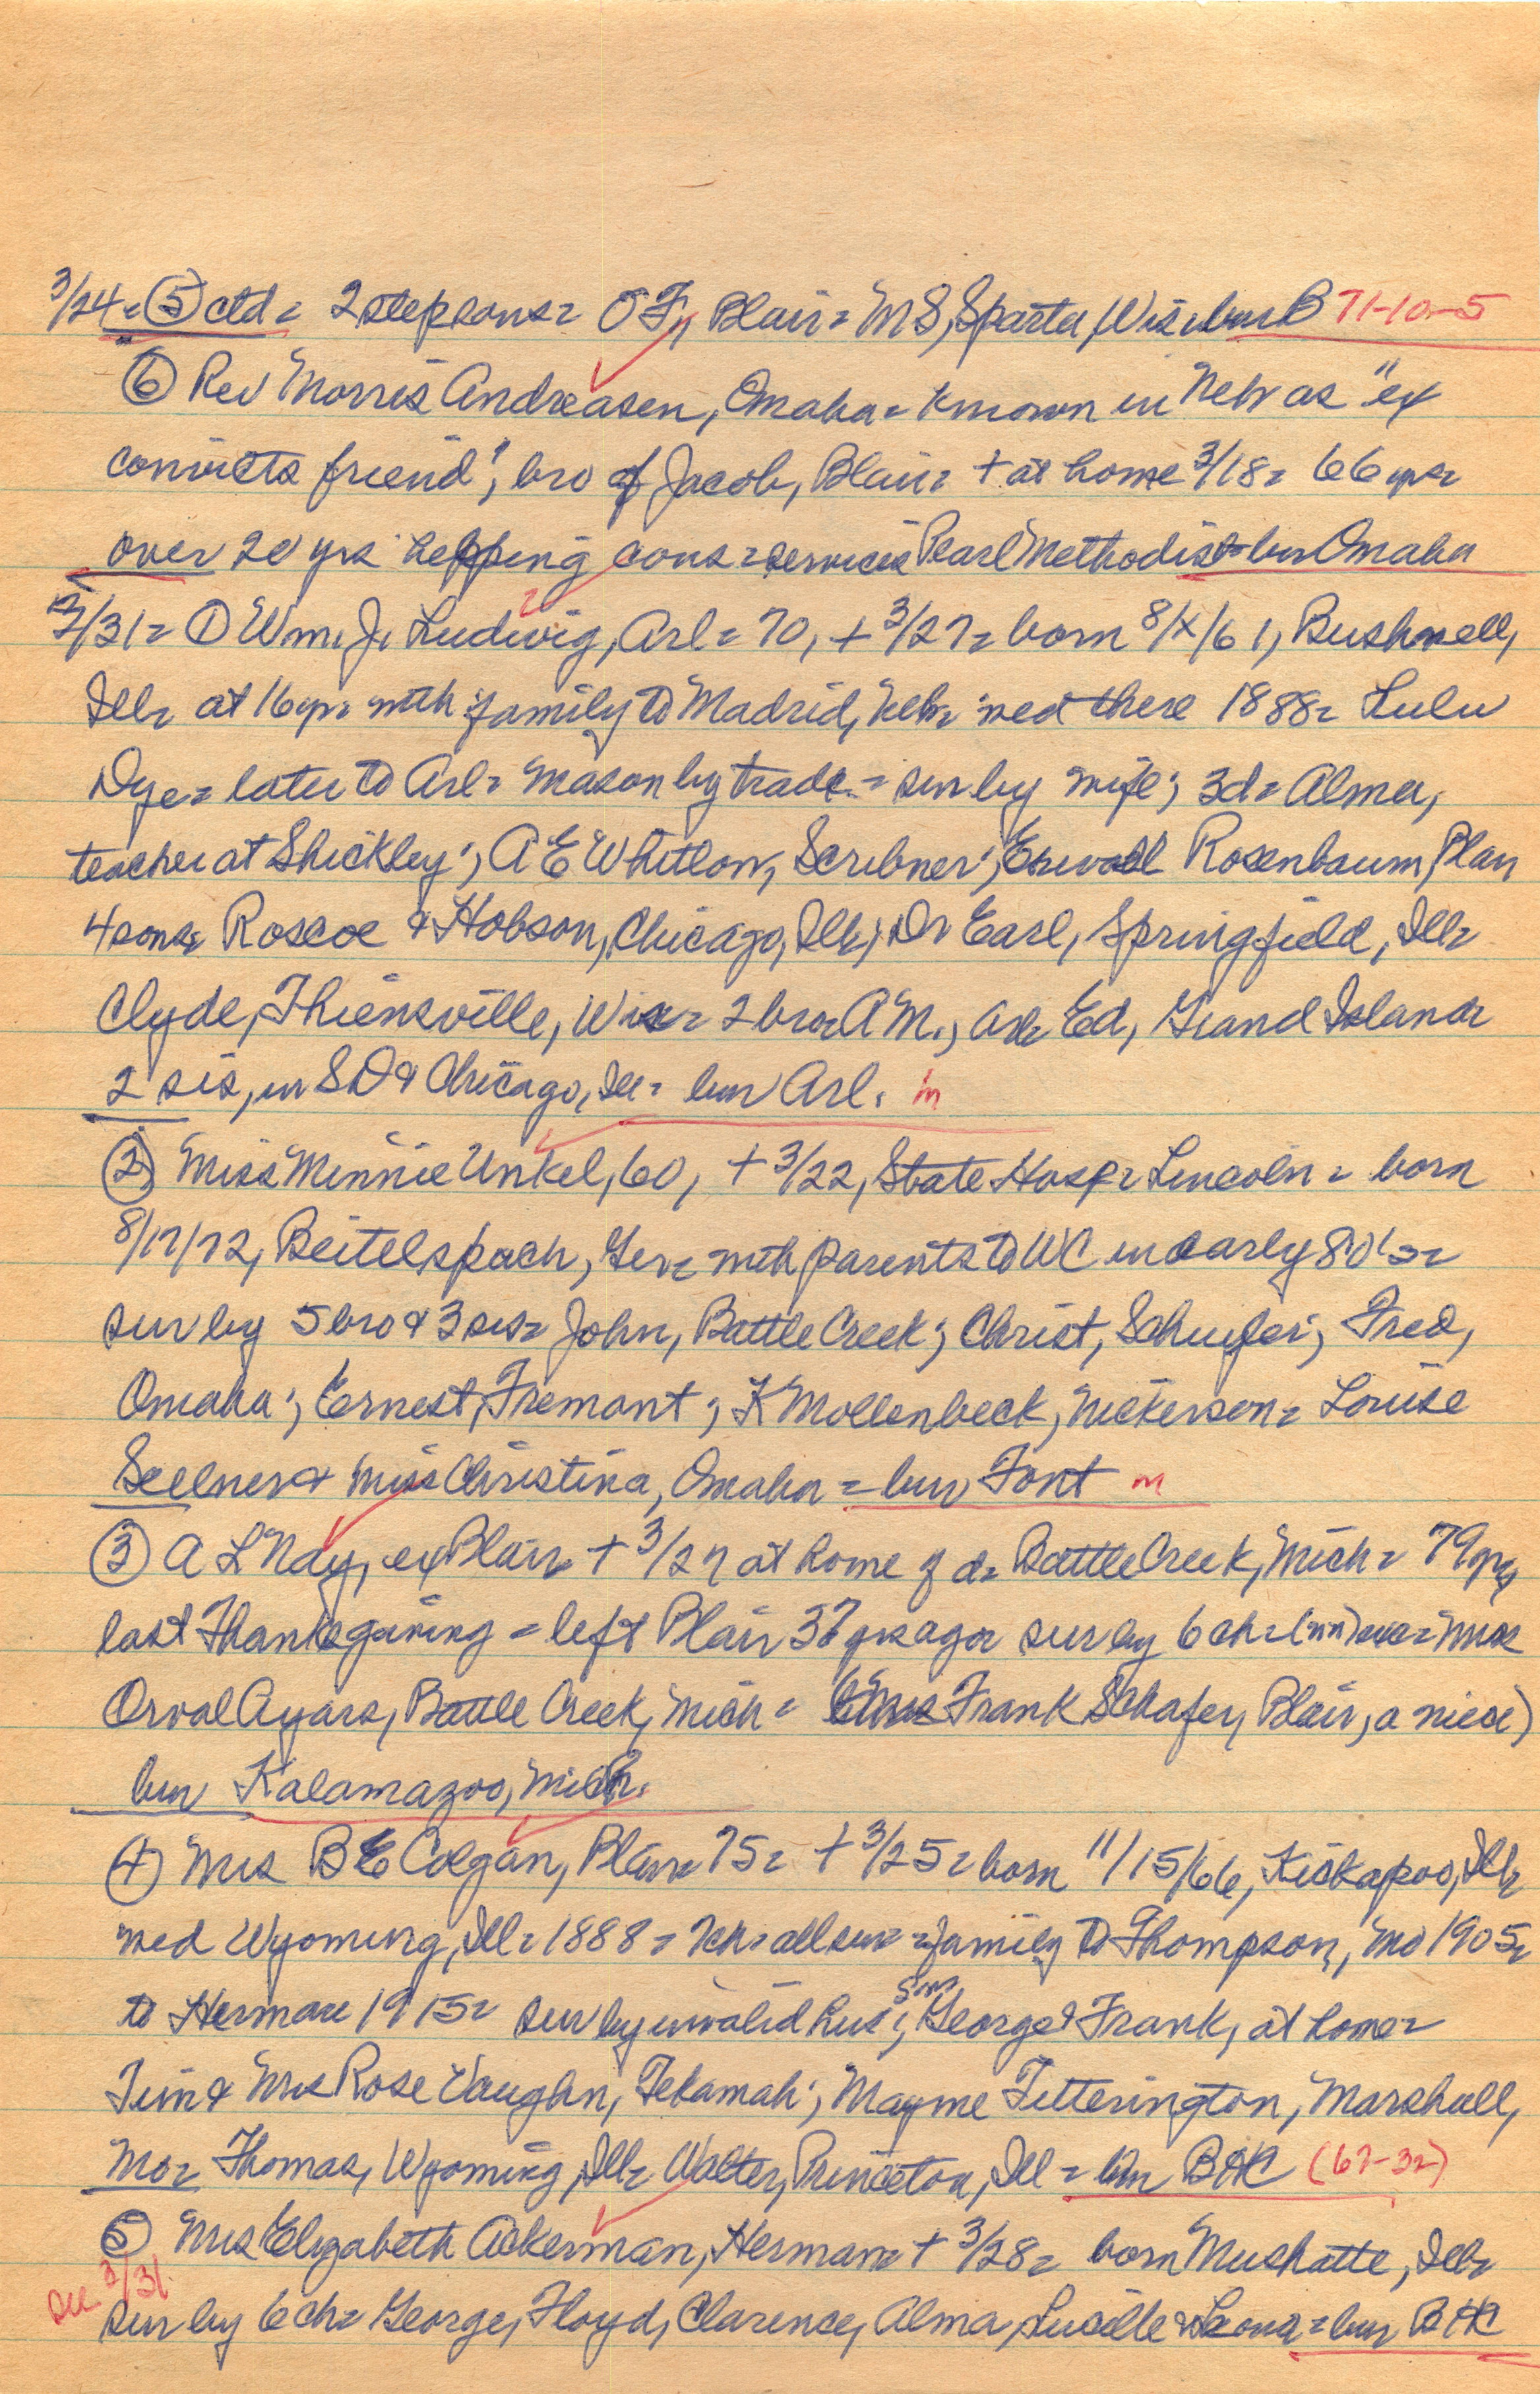 3/24= (5) ctd= 2 stepsons= O F, Blair= M S, Sparta, Wis= bur B 71-10-5
(6) Rev Morris Andreasen, Omaha= known in Nebr as "ex
convicts friend", bro of Jacob, Blair= + at home 3/18= 66 yrs=
over 20 yrs helping cons= services Pearl Methodist= bur Omaha
3/31= (1) Wm. J. Ludwig, Arl= 70, + 3/27= born 8/x/61, Bushnell,
Ill= at 16 yrs with family to Madrid, Nebr= wed there 1888= Lulu
Dye= later to Arl= mason by trade= sur by wife; 3d= Alma,
teacher at Shickley; A E Whitlow, Scribner; Rosenbaum, Blair
4 sons= Roscoe & Hobson, Chicago, Ill; Dr Earl, Springfield, Ill=
Clyde, Thiensville, Wis= 2 bro= A M., Arl= Ed, Grand Island=
2 sis, in SD & Chicago, Ill= bur Arl. m
(2) Miss Minnie Unkel, 60, + 3/22, State Hosp= Lincoln= born
8/17/72, Beitelspach, Ger= with parents to WC in early 80's=
sur by 5 bro & 3 sis= John, Battle Creek; Christ, Schuyler; Fred,
Omaha; Ernest, Fremont; K Mollenbeck, Nickerson= Louise
Sellner & Miss Christina, Omaha= bur Font m
(3) A L Nay, ex Blair= + 3/27 at home of d= Battle Creek, Mich= 79 yrs
last Thanksgiving= left Blair 37 yrs ago= sur by 6 ch= (nn) = Mrs
Orval Ayars, Battle Creek, Mich= (Mrs Frank Schafer, Blair, a niece)
bur Kalamazoo, Mich.
(4) Mrs B E Colgan, Blair= 75= + 3/25= born 11/15/66, Kickapoo, Ill=
wed Wyoming, Ill= 1888= 7ch= all sur= family to Thompson, Mo 1905=
to Herman 1915= sur by invalid hus; sons George & Frank, at home=
Jim & Mrs Rose Vaughn, Tekamah; Mayme Titterington, Marshall,
Mo= Thomas, Wyoming, Ill= Walter, Princeton, Ill= bur BHC (67-32)
(5) Mrs Elizabeth Ackerman, Herman= + 3/28= born Mushatte, Ill=
see 3/31
sur by 6 ch= George, Floyd, Clarence, Alma, Lucille & Leona= bur BHC